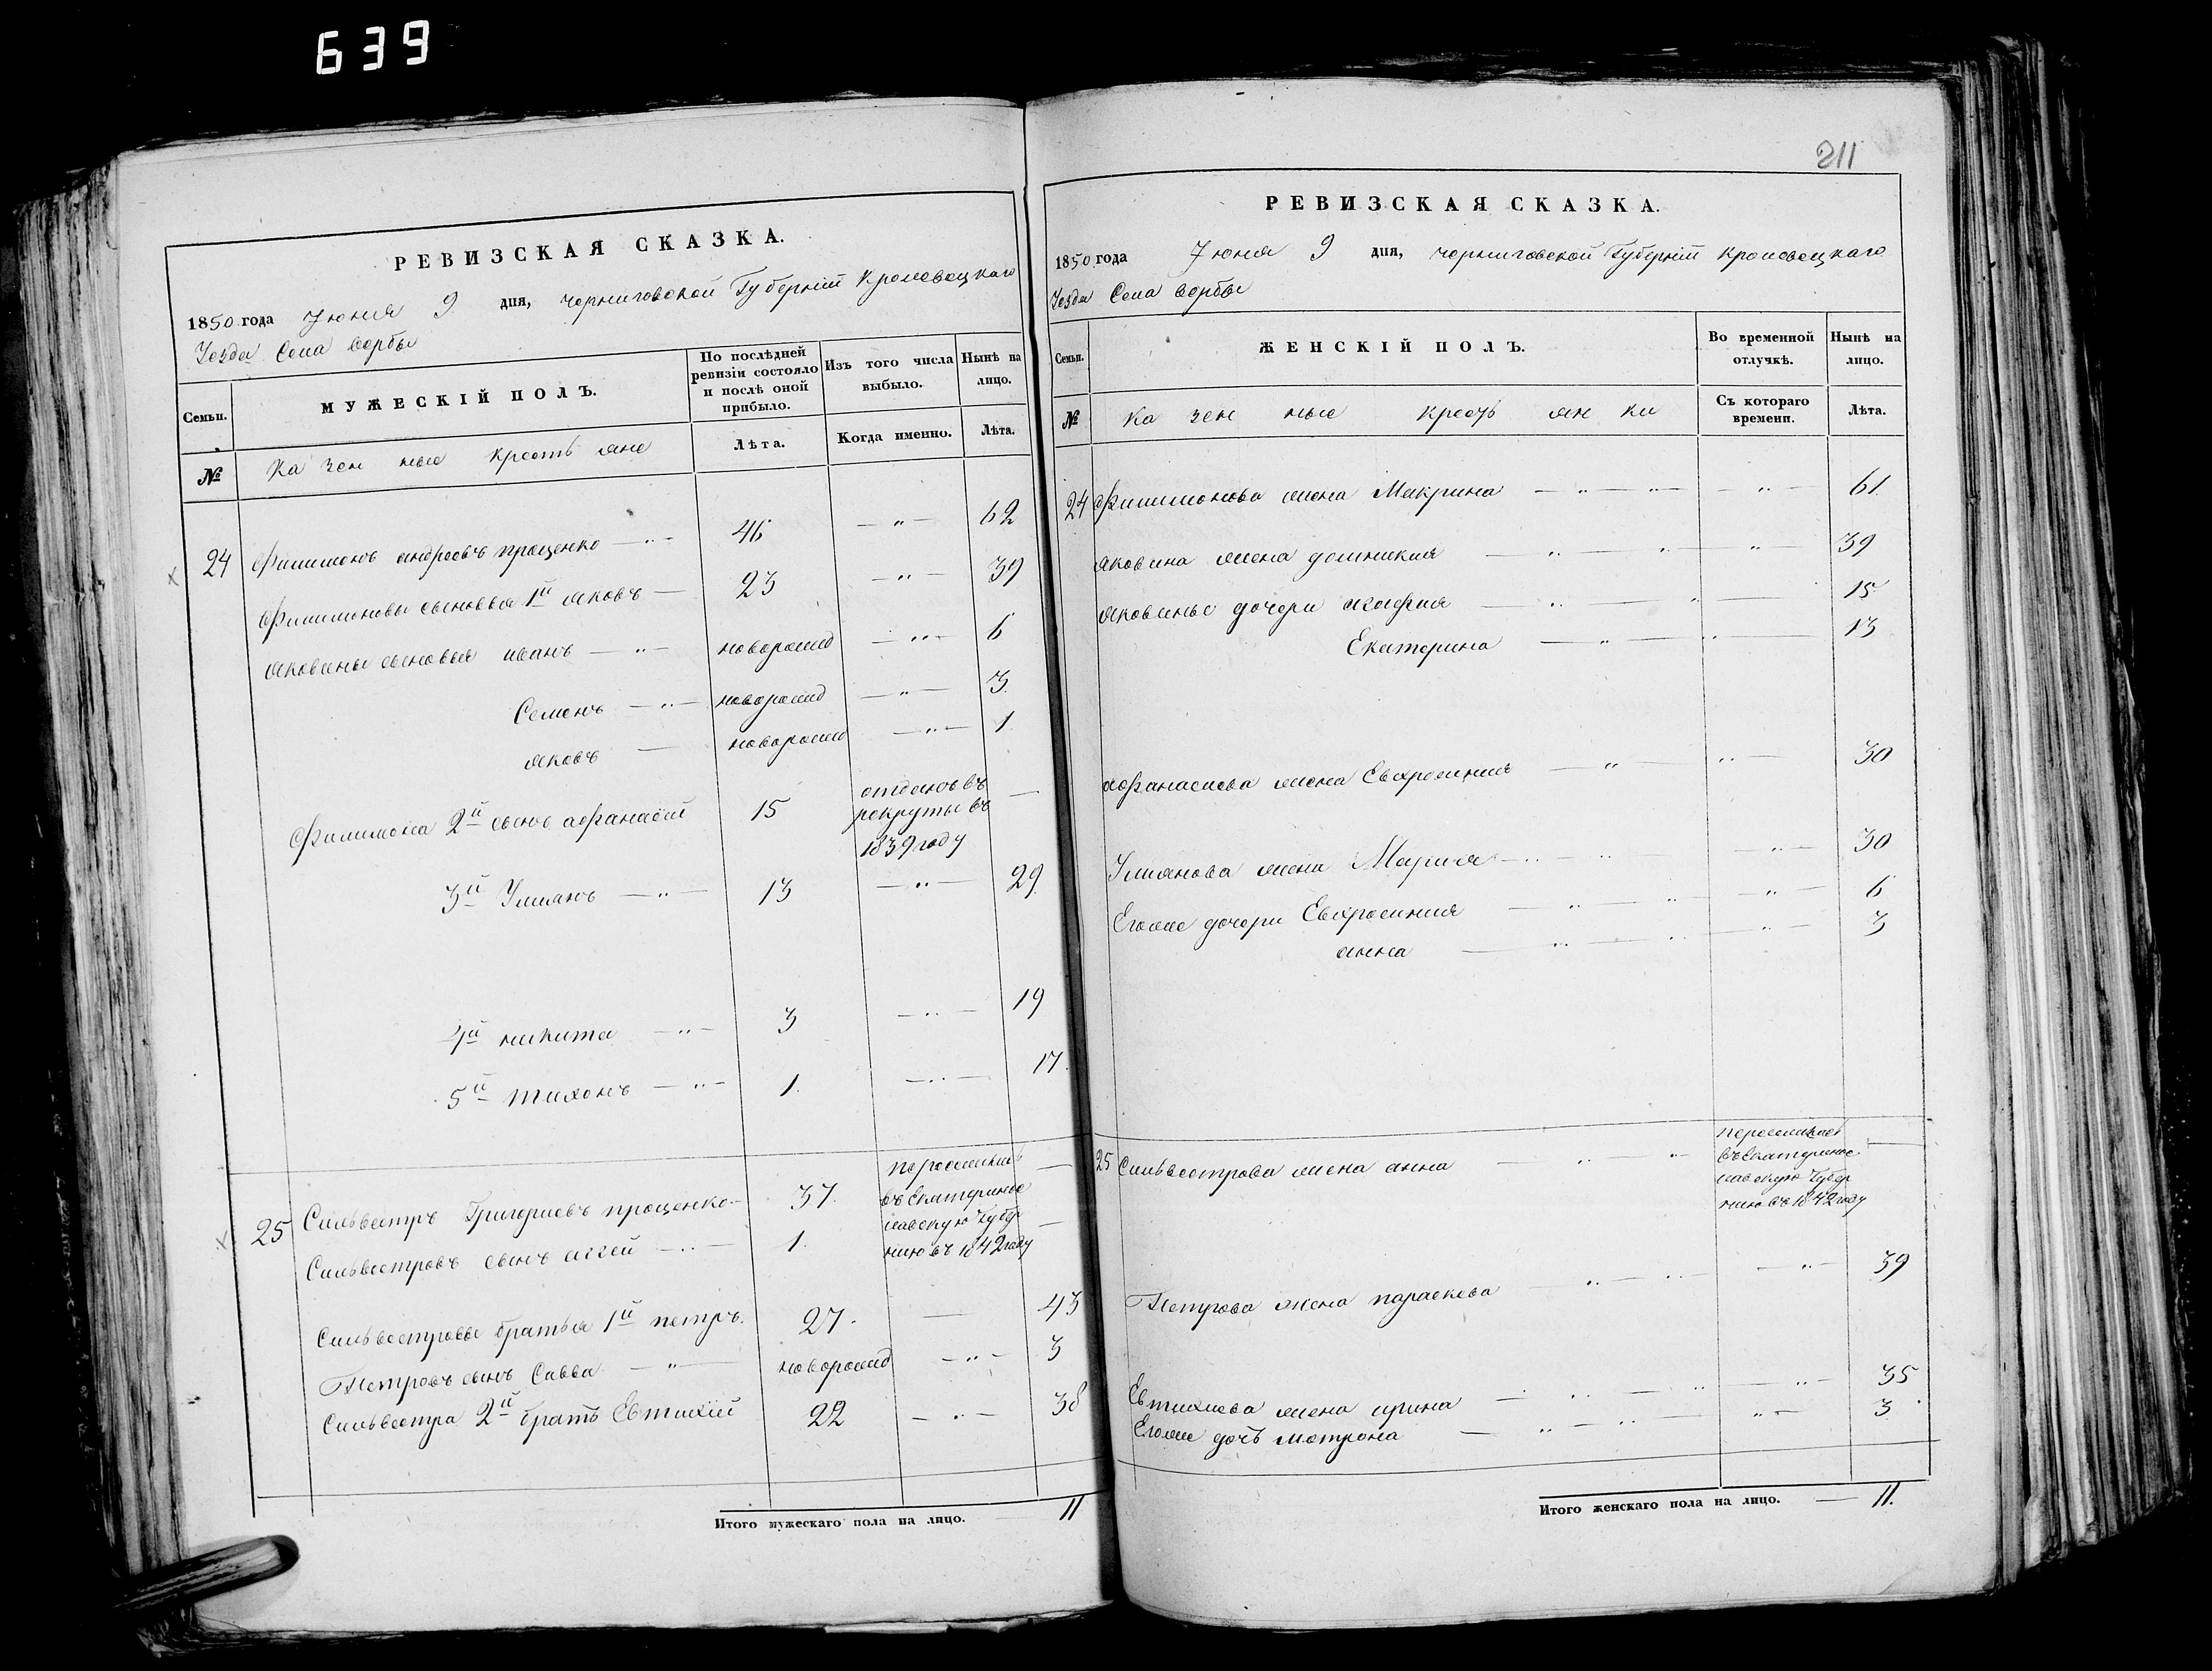 639
РЕВИЗСКАЯ СКАЗКА.
1850 года Июня 9 дня, черниговской Губерніи Кролевецкаго
Уезда Села Вербы
Семьи.
МУЖЕСКІЙ ПОЛЪ.
По послѣдней ревизіи состояло и послѣ оной прибыло.
Изъ того числа выбыло.
Нынѣ на лицо.
№
Казенные крестьяне
Лѣта.
Когда именно.
Лѣта.
24 Филимонъ андреевъ проценко — 46 — „ — 62
Филимоновы сыновья 1й яковъ — 23 — „ — 39
яковины сыновья иванъ — „ — новорожд — „ — 6
Семенъ — „ — новорожд — „ — 3.
яковъ — новорожд — „ — 1
Филимона 2й сынъ афанасій 15 отданъ въ —
рекруты въ
1839 году
3й Улианъ — „ — 13 — „ — 29
4й никита — „ — 3 — „ — 19
5й тихонъ — „ — 1. — „ — 17.
25 Сильвестръ Григориевъ проценко — 37.
Сильвестровъ сынъ аггей — „ — 1.
въ Екатеринос
лавскую Губер
нию въ 1842 году
Сильвестровы братья 1й петръ. 27. — 43
Петровъ сынъ Савва — „ — новорожд — „ — 3
Сильвестра 2й братъ Евтихій 22 — „ — 38
Итого мужескаго пола на лицо. — 11
211
РЕВИЗСКАЯ СКАЗКА.
1850 года Июня 9 дня, черниговской Губерніи кролевецкаго
Уезда Села Вербы
Семьи.
ЖЕНСКІЙ ПОЛЪ.
Во временной отлучкѣ.
Нынѣ на лицо.
№
Казенные крестьянки
Съ котораго времени.
Лѣта.
24 Филимонова жена Макрина — „ — „ — — „ — 61.
яковина жена домникия — „ — „ — „ — 39
яковины дочери агафия — „ — „ — 15
Екатерина — „ — „ — 13
афанасиева жена Евфросиния — „ — „ — 30
Улианова жена Мария — „ — „ — „ — 30
Егоже дочери Евфросиния — „ — „ — „ — 6
анна — „ — „ — „ — 3
25 Сильвестрова жена анна — „ — „ —
въ Екатеринос
лавскую Губер
нию въ 1842 году
Петрова жена параскева — „ — „ — — „ — 39
Евтихиева жена ирина — „ — „ — „ — 35
Егоже дочь мотрона — „ — „ — „ — 3
Итого женскаго пола на лицо. — 11.